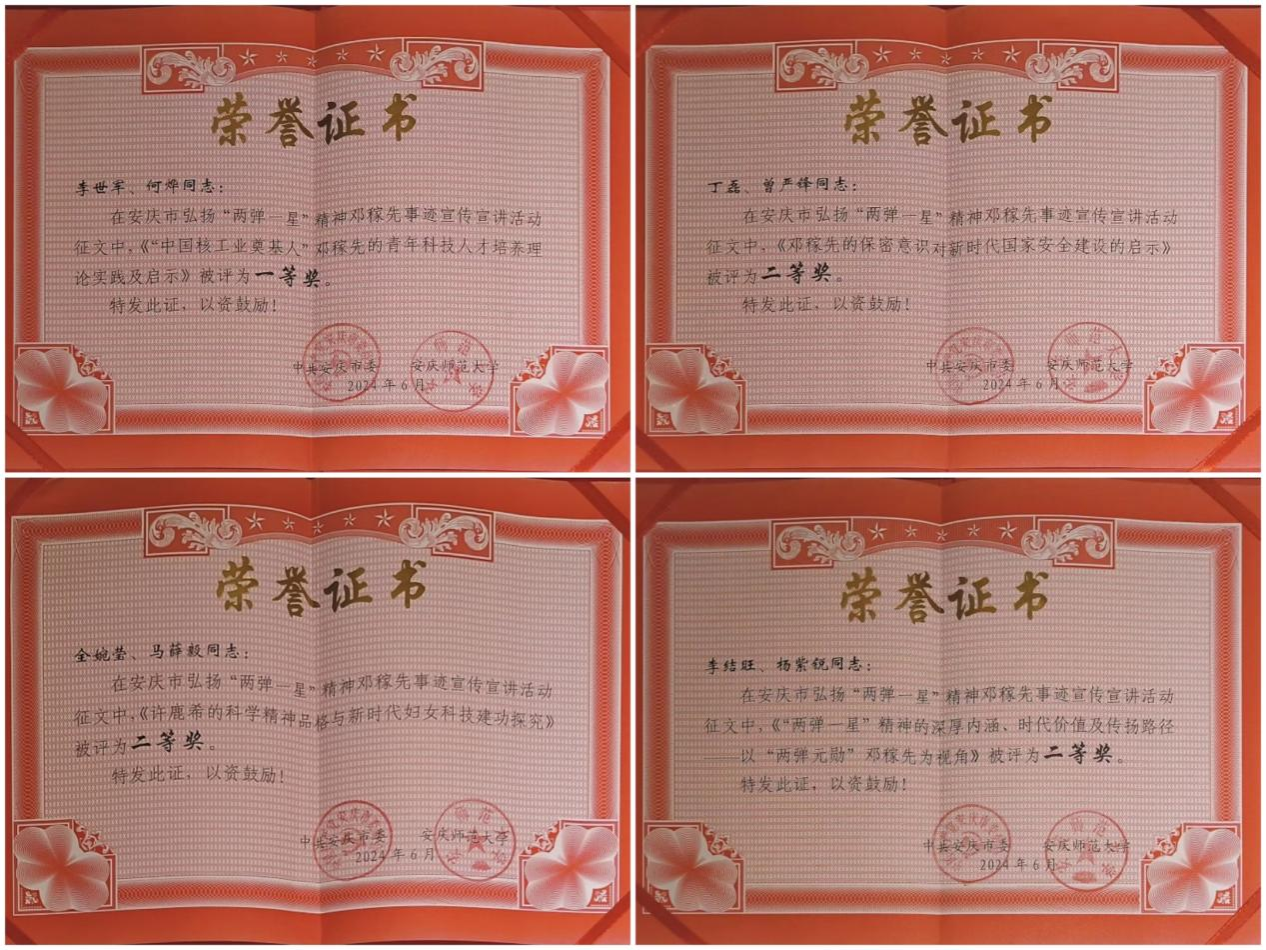 荣誉证书
李世军、何烨同志：
在安庆市弘扬“两弹一星”精神邓稼先事迹宣传宣讲活动
征文中，《“中国核工业奠基人”邓稼先的青年科技人才培养理
论实践及启示》被评为一等奖。
特发此证，以资鼓励！
中共安庆市委 安庆师范大学
2024年6月
荣誉证书
丁磊、曾严锋同志：
在安庆市弘扬“两弹一星”精神邓稼先事迹宣传宣讲活动
征文中，《邓稼先的保密意识对新时代国家安全建设的启示》
被评为二等奖。
特发此证，以资鼓励！
中共安庆市委 安庆师范大学
2024年6月
荣誉证书
全婉莹、马薛毅同志：
在安庆市弘扬“两弹一星”精神邓稼先事迹宣传宣讲活动
征文中，《许鹿希的科学精神品格与新时代妇女科技建功探究》
被评为二等奖。
特发此证，以资鼓励！
中共安庆市委 安庆师范大学
2024年6月
荣誉证书
李结旺、杨紫锐同志：
在安庆市弘扬“两弹一星”精神邓稼先事迹宣传宣讲活动
征文中，《“两弹一星”精神的深厚内涵、时代价值及传扬路径
——以“两弹元勋”邓稼先为视角》被评为二等奖。
特发此证，以资鼓励！
中共安庆市委 安庆师范大学
2024年6月